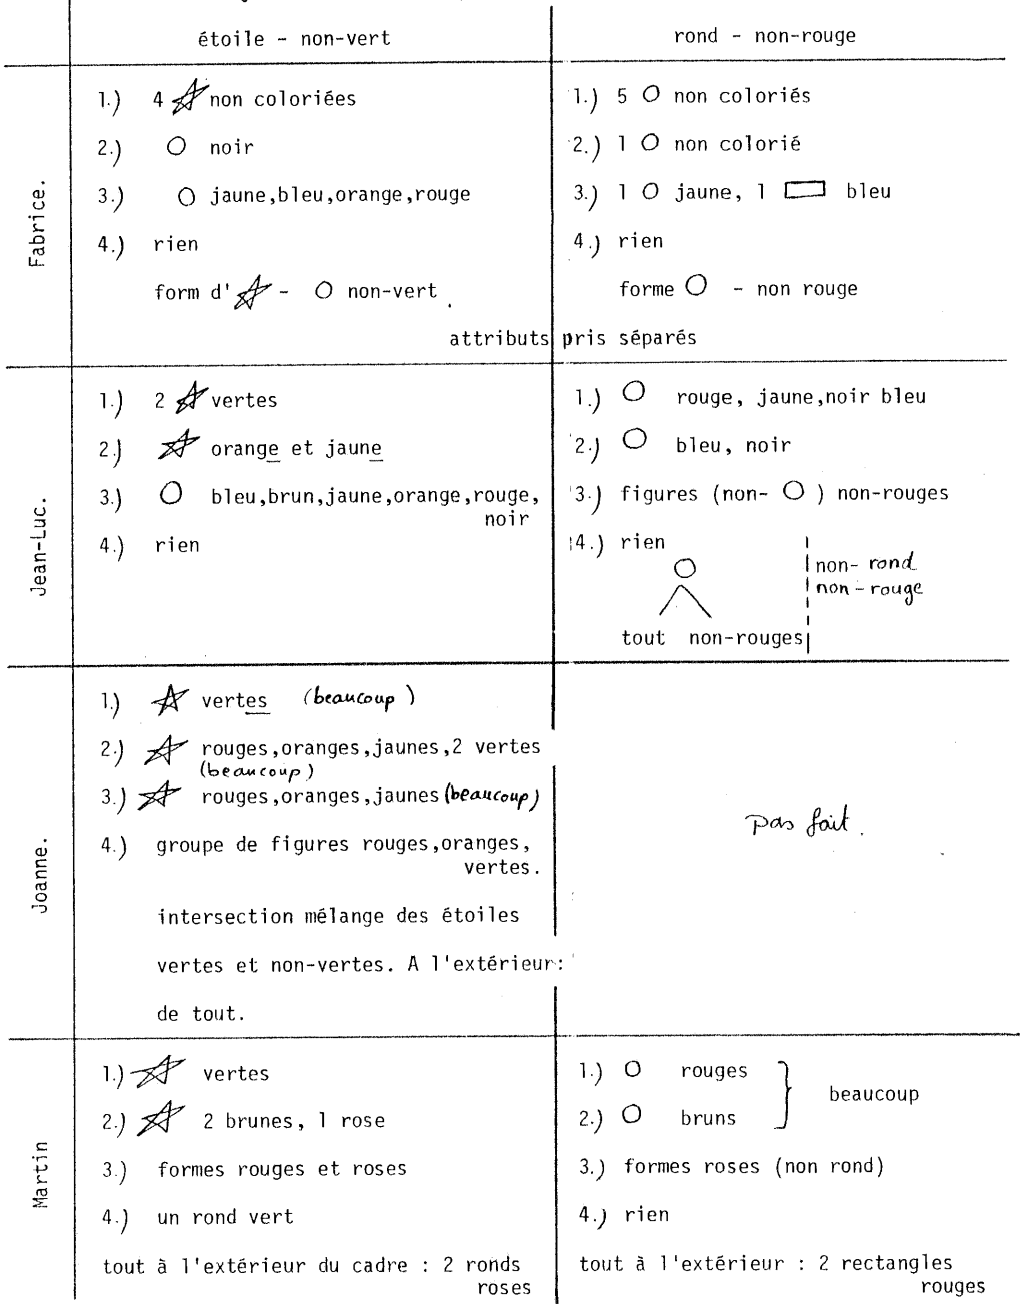 étoile - non-vert
rond - non-rouge
Fabrice.
1.) 4 non coloriées
2.) noir
3.) jaune,bleu,orange,rouge
4.) rien
form d' - non-vert
1.) 5 non coloriés
2.) 1 non colorié
3.) 1 jaune, 1 bleu
4.) rien
forme - non rouge
attributs pris séparés
Jean-Luc.
1.) 2 vertes
2.) orange et jaune
3.) bleu,brun,jaune,orange,rouge,
noir
4.) rien
1.) rouge, jaune,noir bleu
2.) bleu, noir
3.) figures (non- ) non-rouges
4.) rien
non-rond
non-rouge
tout non-rouges
Joanne.
1.) vertes (beaucoup)
2.) rouges,oranges,jaunes,2 vertes
(beaucoup)
3.) rouges,oranges,jaunes(beaucoup)
4.) groupe de figures rouges,oranges,
vertes.
intersection mélange des étoiles
vertes et non-vertes. A l'extérieur:
de tout.
pas fait.
Martin
1.) vertes
2.) 2 brunes, 1 rose
3.) formes rouges et roses
4.) un rond vert
tout à l'extérieur du cadre : 2 ronds
roses
1.) rouges
2.) bruns
beaucoup
3.) formes roses (non rond)
4.) rien
tout à l'extérieur : 2 rectangles
rouges